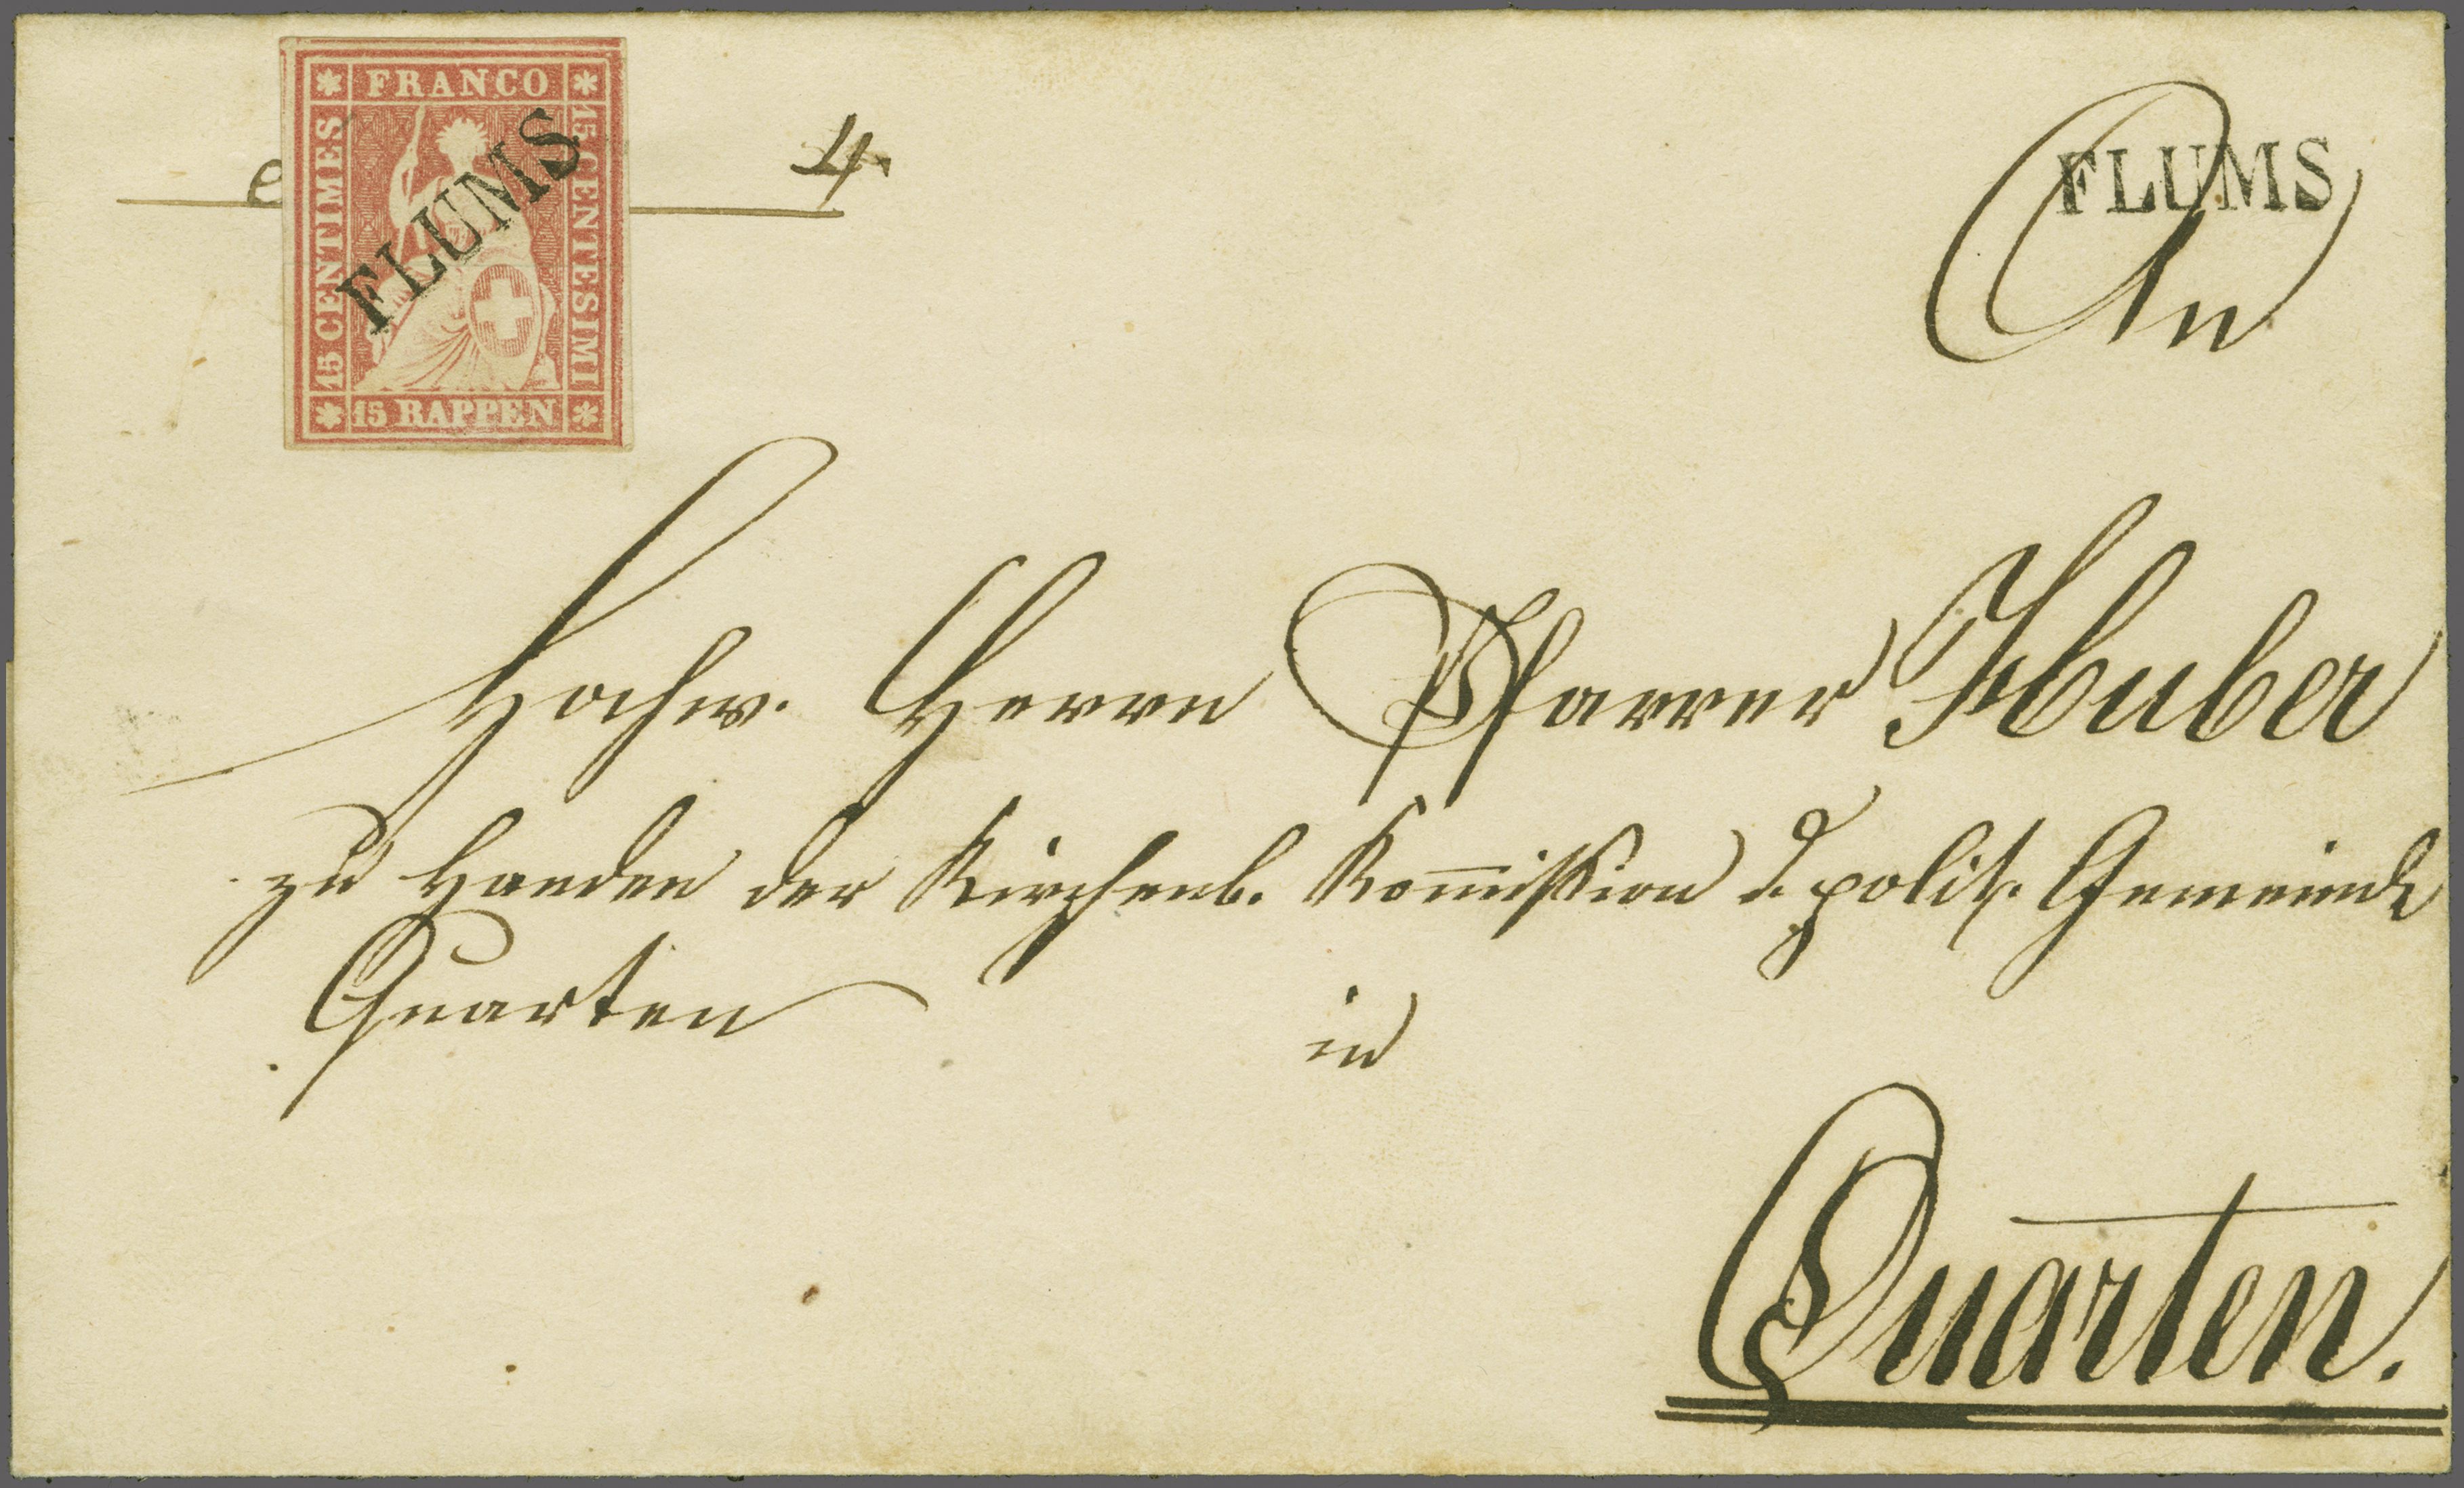 FRANCO
15 CENTIMES
15 CENTESIMI
15 RAPPEN
FLUMS
FLUMS
4
An
Hochw. Herrn Pfarrer Huber
zu Handen der Kirchenb. Kom̅ission d. polit. Gemeinde
Quarten
in
Quarten.